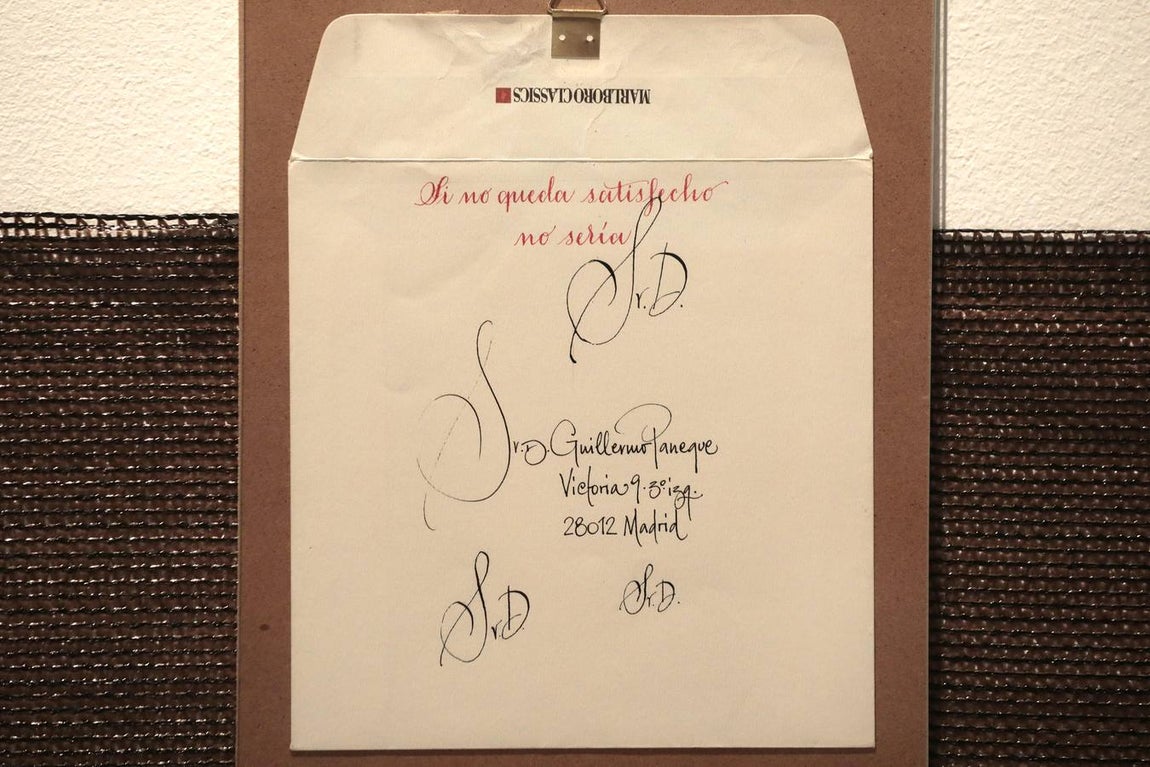 MARLBORO CLASSICS
Si no queda satisfecho
no sería
Sr. D.
Sr. D. Guillermo Paneque
Victoria 9. 3º izq.
28012 Madrid
Sr. D
Sr. D.